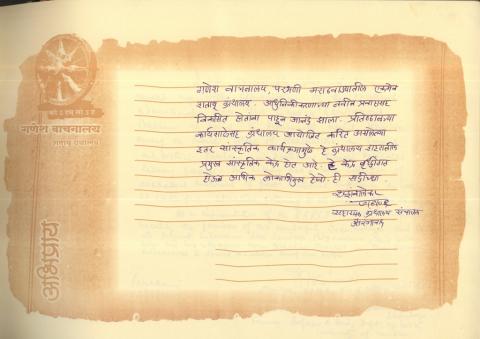 गणेश वाचनालय
शतायु ग्रंथालय
अभिप्राय
गणेश वाचनालय, परभणी मराठवाड्यातील एकमेव
शतायु ग्रंथालय. आधुनिकीकरणाच्या नवीन प्रवाहासह
विकसीत होताना पाहून आनंद झाला. प्रतिष्ठानच्या
कार्यशाळेसह ग्रंथालय आयोजित करित असलेल्या
इतर सांस्कृतिक कार्यक्रमामुळे हे ग्रंथालय शहरातील
प्रमुख सांस्कृतिक केंद्र होत आहे. हे केंद्र वृद्धींगत
होऊन अधिक लोकाभिमुख होवो. ही सदीच्छा.
सहाय्यक ग्रंथालय संचालक
औरंगाबाद